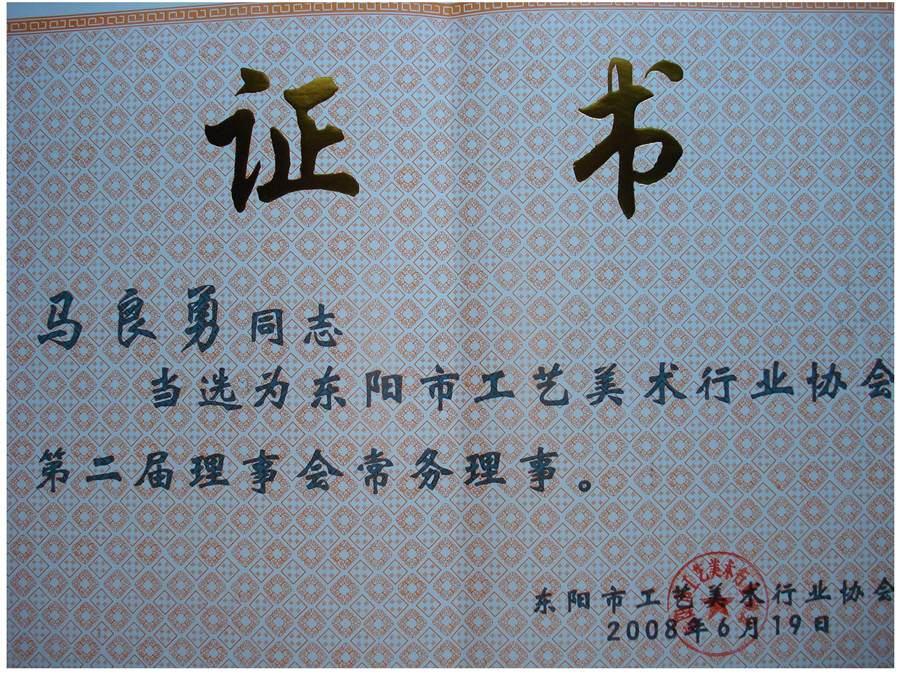 证书
马良勇同志
当选为东阳市工艺美术行业协会
第二届理事会常务理事。
工艺美术行
东阳市工艺美术行业协会
2008年6月19日